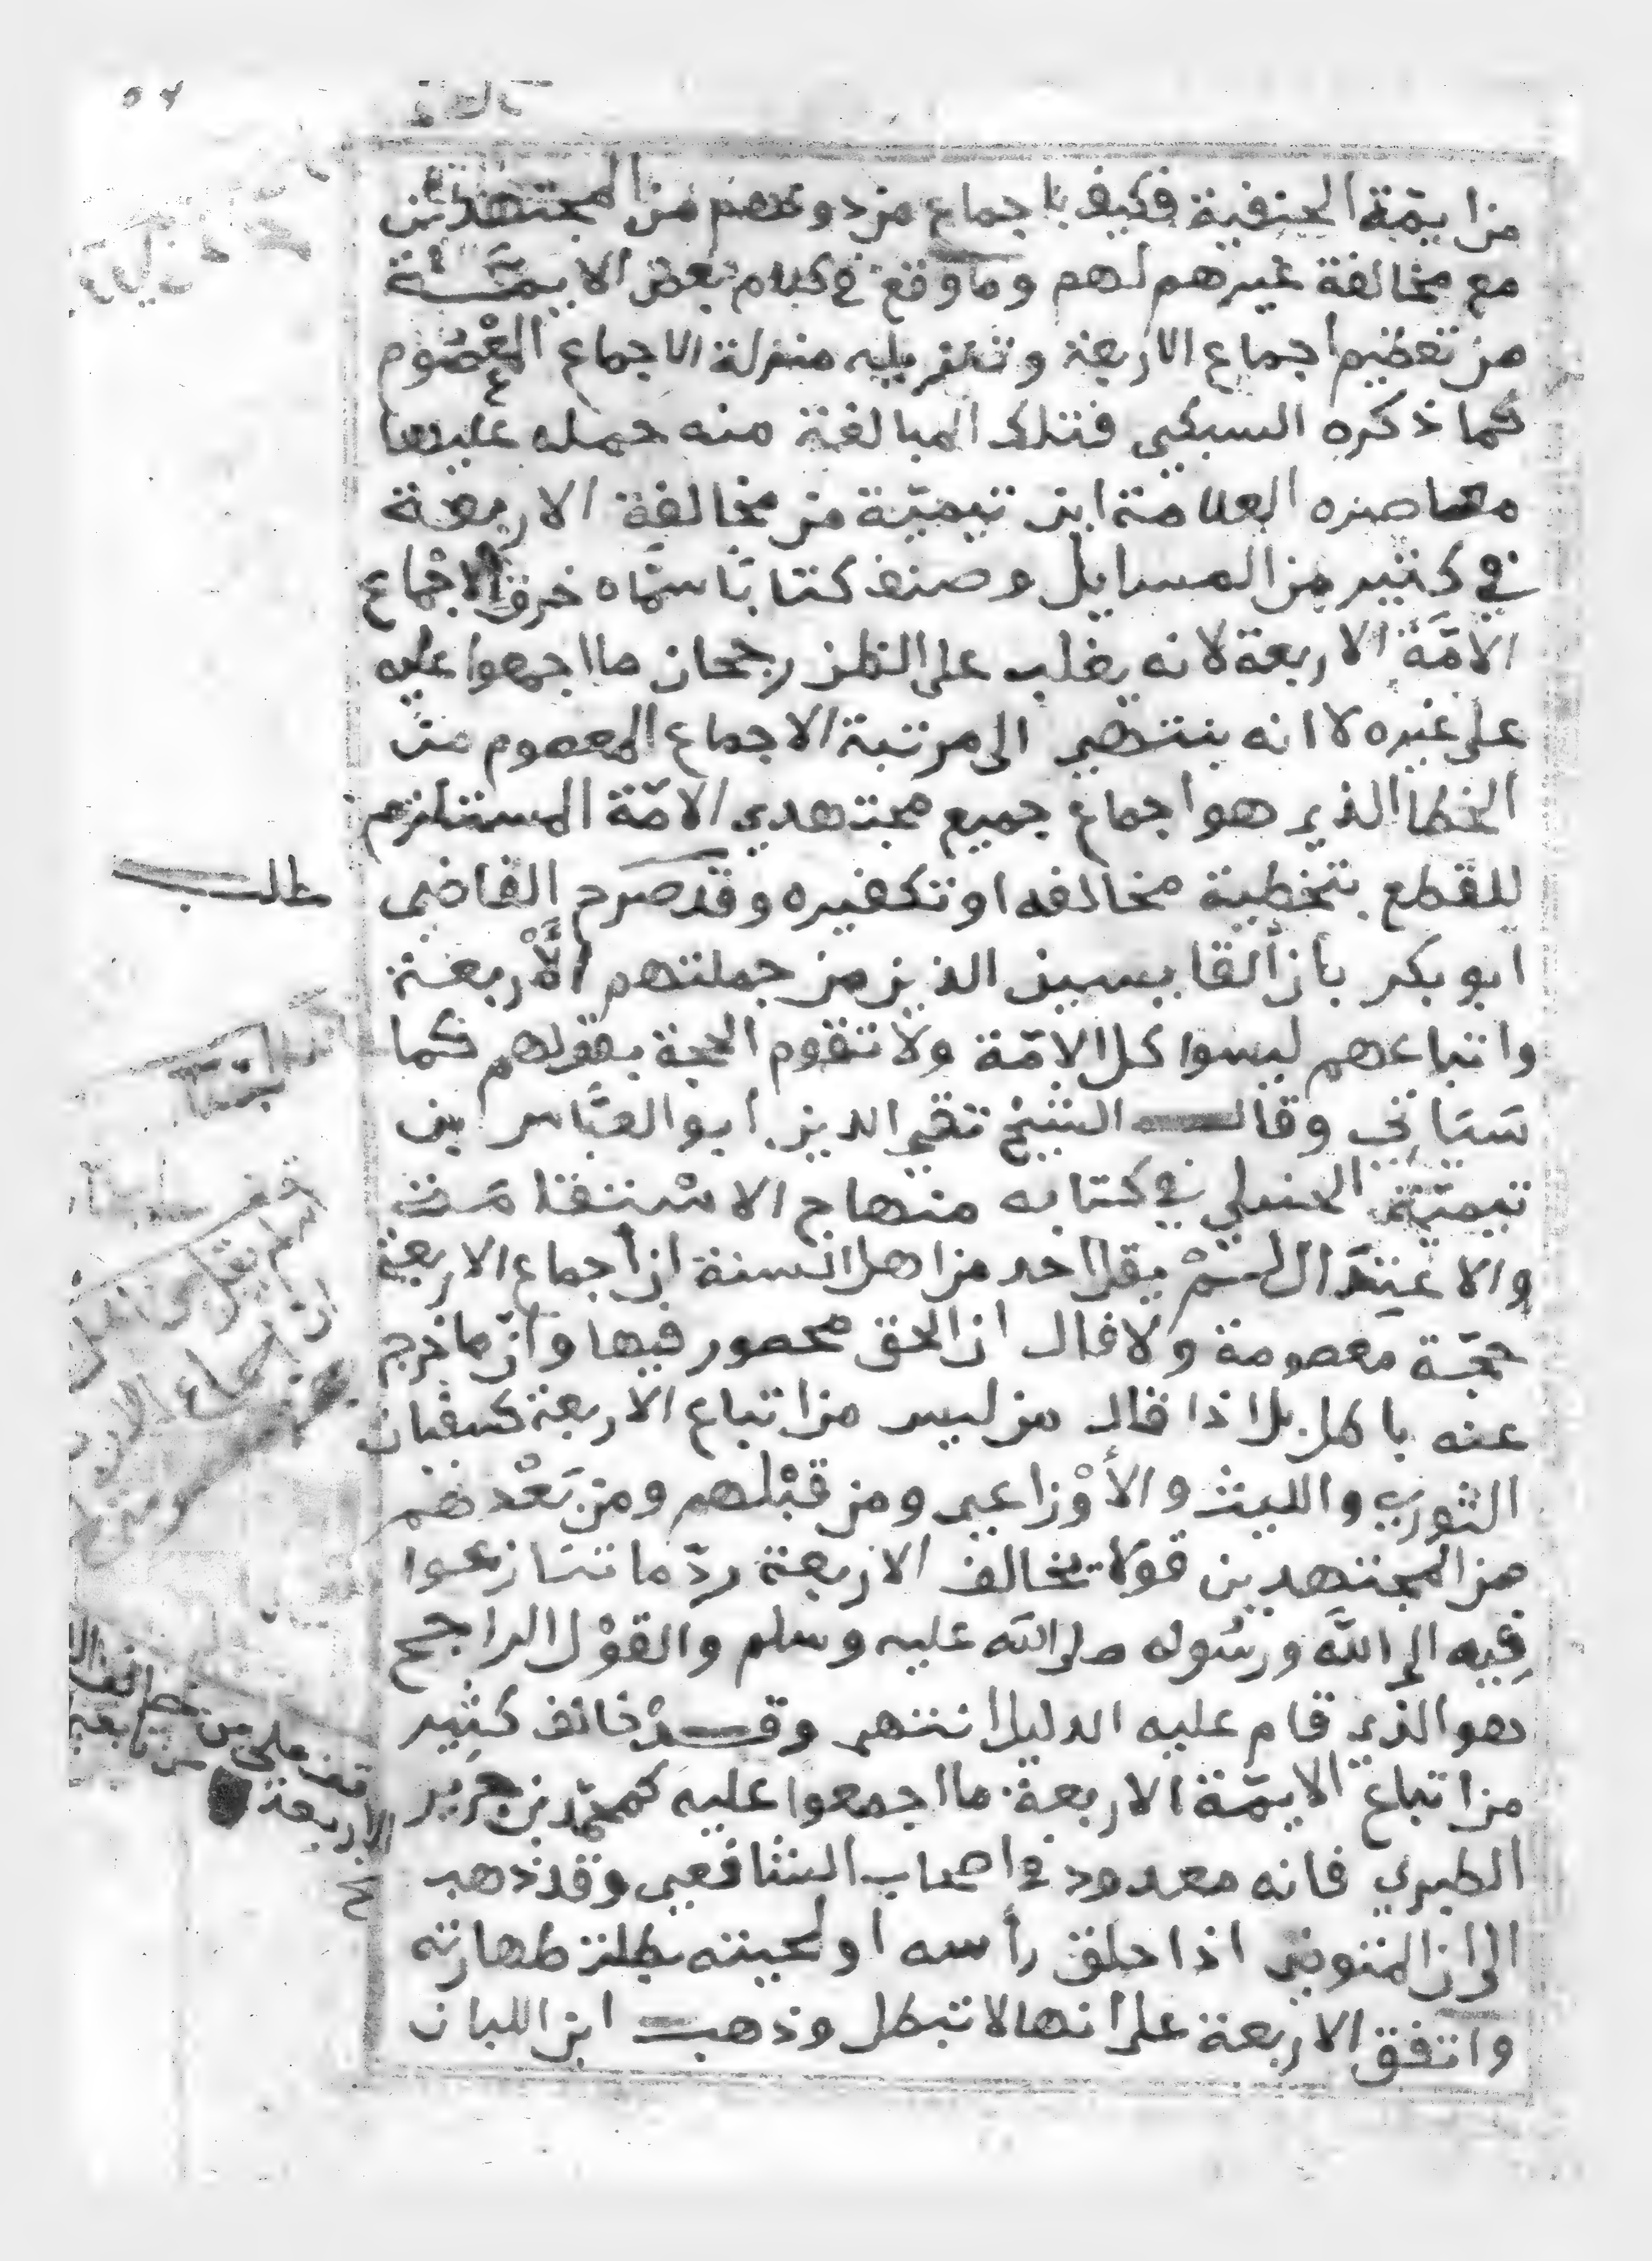 من ايمّة الحنفية فكيف با جماع من دونهم من المجتهدين
مع مخالفة غيرهم لهم وما وقع في كلام بعض الايمّة
من تعظيم اجماع الاربعة وتنزيله منزلة الاجماع المعْصُوم
كما ذكره السبكي فتلك المبالغة منه حمله عليها
معاصره العلامة ابن تيميّة من مخالفة الاربعة
في كثير من المسايل وصنف كتابًا سمّاه خرق الاجماع
الامّة الاربعة لانه يغلب على الظن رجحان ما اجمعوا عليه
على غيره لا انه ينتهي الى مرتبة الاجماع المعصوم من
الخطا الذي هو اجماع جميع مجتهدي الامّة المستلزم
للقطع بتخطية مخالفه او تكفيره وقد صرح القاضي
ابو بكر بان ألقايسين الذين من جملتهم الأربعة
واتباعهم ليسوا كل الامّة ولا تقوم الحجة بقولهم كما
سَيَاتي وقال الشيخ تقي الدين ابو العبّاس بن
تيميّة الحنبلي في كتابه منهاج الاسْتقامَة
والاعتدَال لَمْ يقل احد من اهل السنة ان اجماع الاربعة
حجّة معصومة ولا قال ان الحق محصور فيها وأنّ ما خرج
عنه باطل بل اذا قال من ليس من اتباع الاربعة كسفيان
الثوري والليث والأوْزاعي ومن قبْلهم ومن بَعْدهم
من المجتهدين قولا يخالف الاربعة ردّ ما تنازعوا
فِيه الى اللَّه ورسُوله صلى اللَّه عليه وسلم والقوْل الراجح
هو الذي قام عليه الدليل انتهى وقدْ خالف كثِير
من اتباع الايمّة الاربعة ما اجمعوا عليه كمحمّد بن جَرير
الطبري فانه معدود في اصحاب الشافعي وقد ذهب
الى ان المتوضي اذا حلق رأسه او لحيته بطلت طهارته
واتفق الاربعة على انها لا تبطل وذهب ابن اللبان
مطلب
قف على من خالف
الاربعة